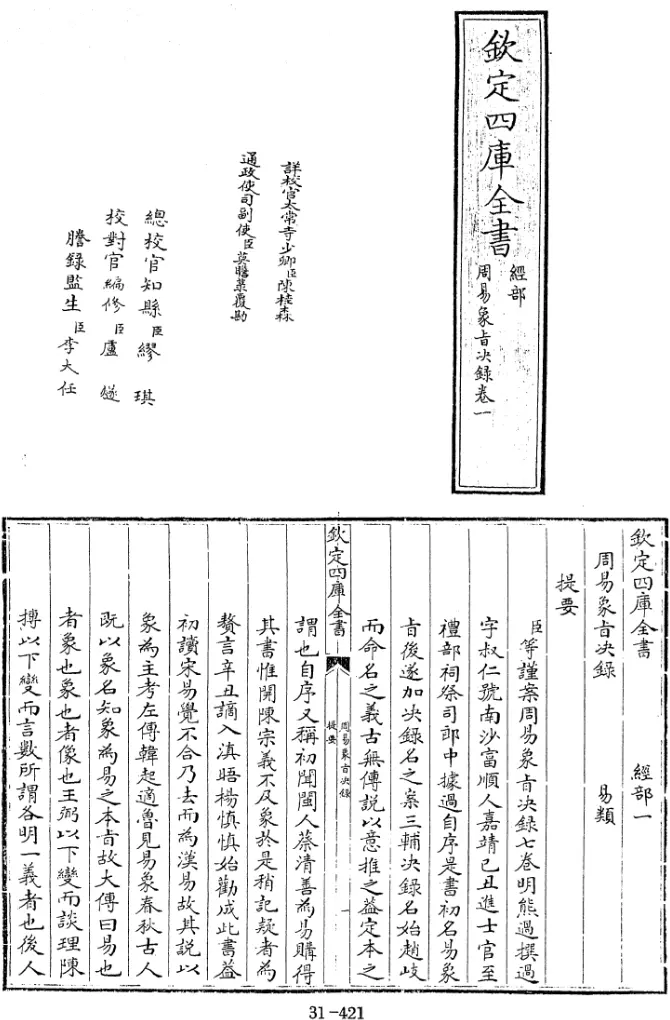 欽定四庫全書
經部
周易象旨決錄卷一
詳校官太常寺少卿臣陳桂森
通政使司副使臣莫瞻菉覆勘
總校官知縣臣繆琪
校對官編修臣盧遂
謄錄監生臣李大任
欽定四庫全書 經部一
周易象旨決錄 易類
提要
臣等謹案周易象旨決錄七卷明熊過撰過
字叔仁號南沙富順人嘉靖己丑進士官至
禮部祠祭司郎中據過自序是書初名易象
旨後遂加決錄名之案三輔決錄名始趙岐
而命名之義古無傳說以意推之葢定本之
欽定四庫全書
周易象旨決錄
提要
一
謂也自序又稱初聞閩人蔡清善為易購得
其書惟開陳宗義不及象於是稍記疑者為
贅言辛丑謫入滇晤楊慎慎始勸成此書葢
初讀宋易覺不合乃去而為漢易故其說以
象為主考左傳韓起適魯見易象春秋古人
既以象名知象為易之本旨故大傳曰易也
者象也象也者像也王弼以下變而談理陳
摶以下變而言數所謂各明一義者也後人
31-421